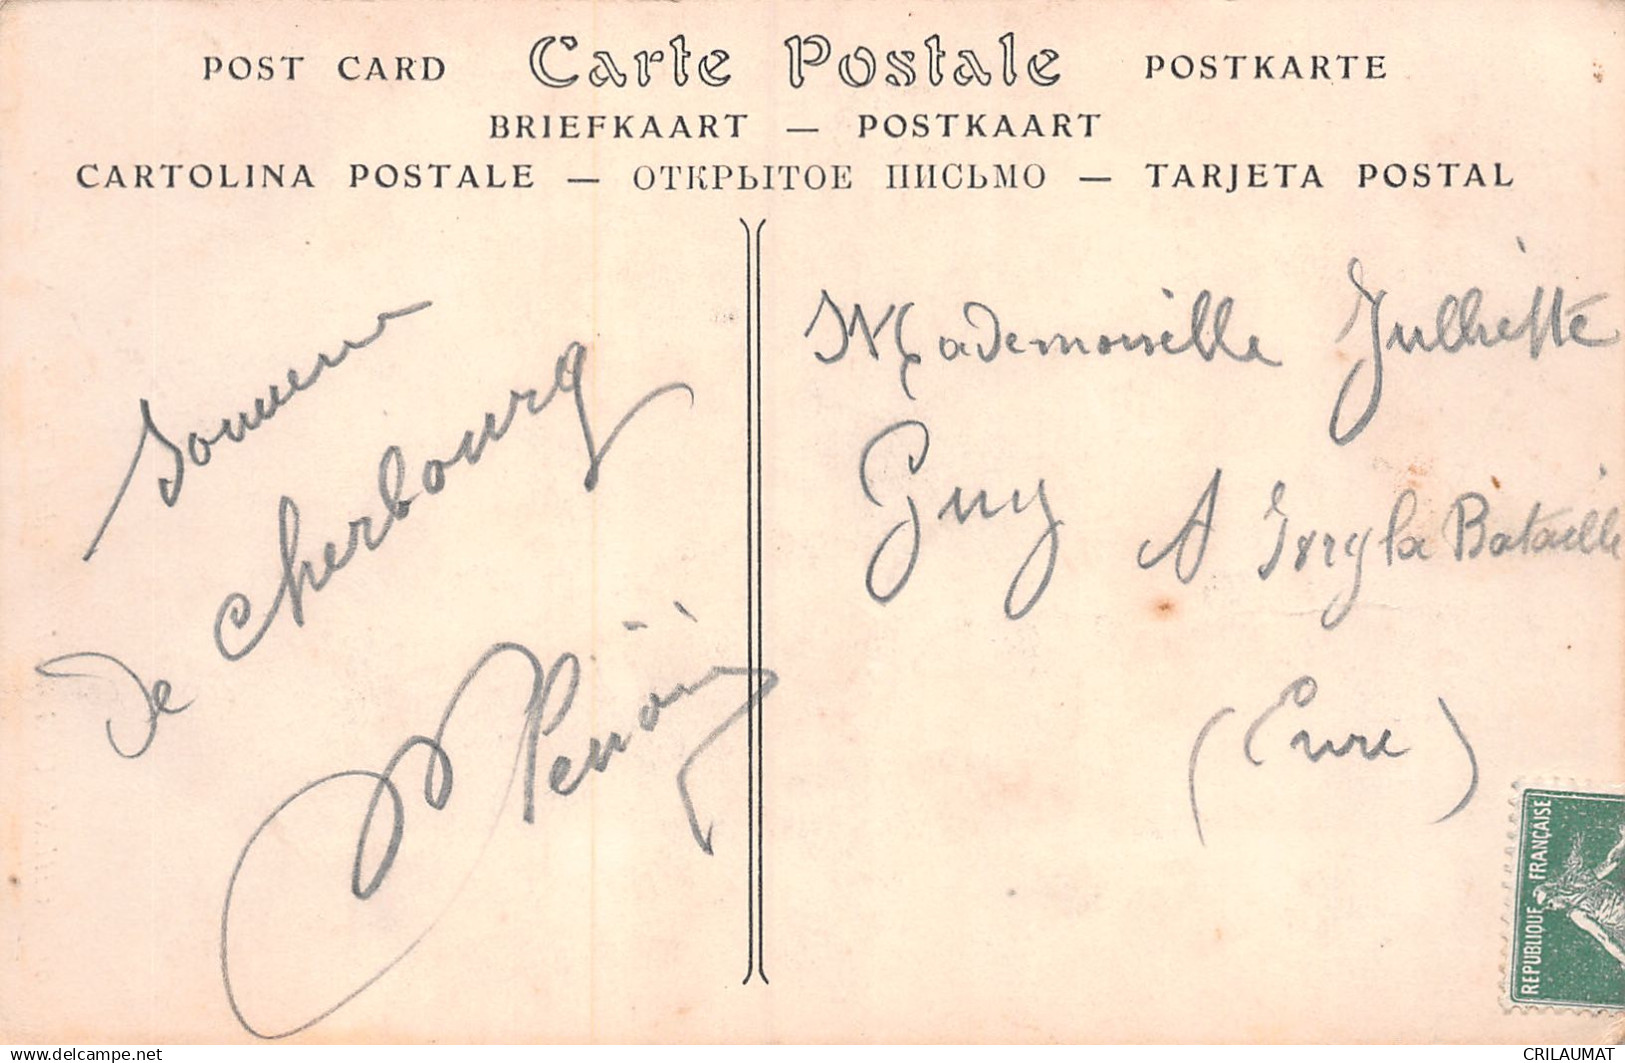 POST CARD Carte Postale POSTKARTE
BRIEFKAART — POSTKAART
CARTOLINA POSTALE — ОТКРЫТОЕ ПИСЬМО — TARJETA POSTAL
de Cherbourg
Mademoiselle Julliette
Guy A Ivry la Bataille
(Eure)
REPUBLIQUE FRANÇAISE
www.delcampe.net
CRILAUMAT